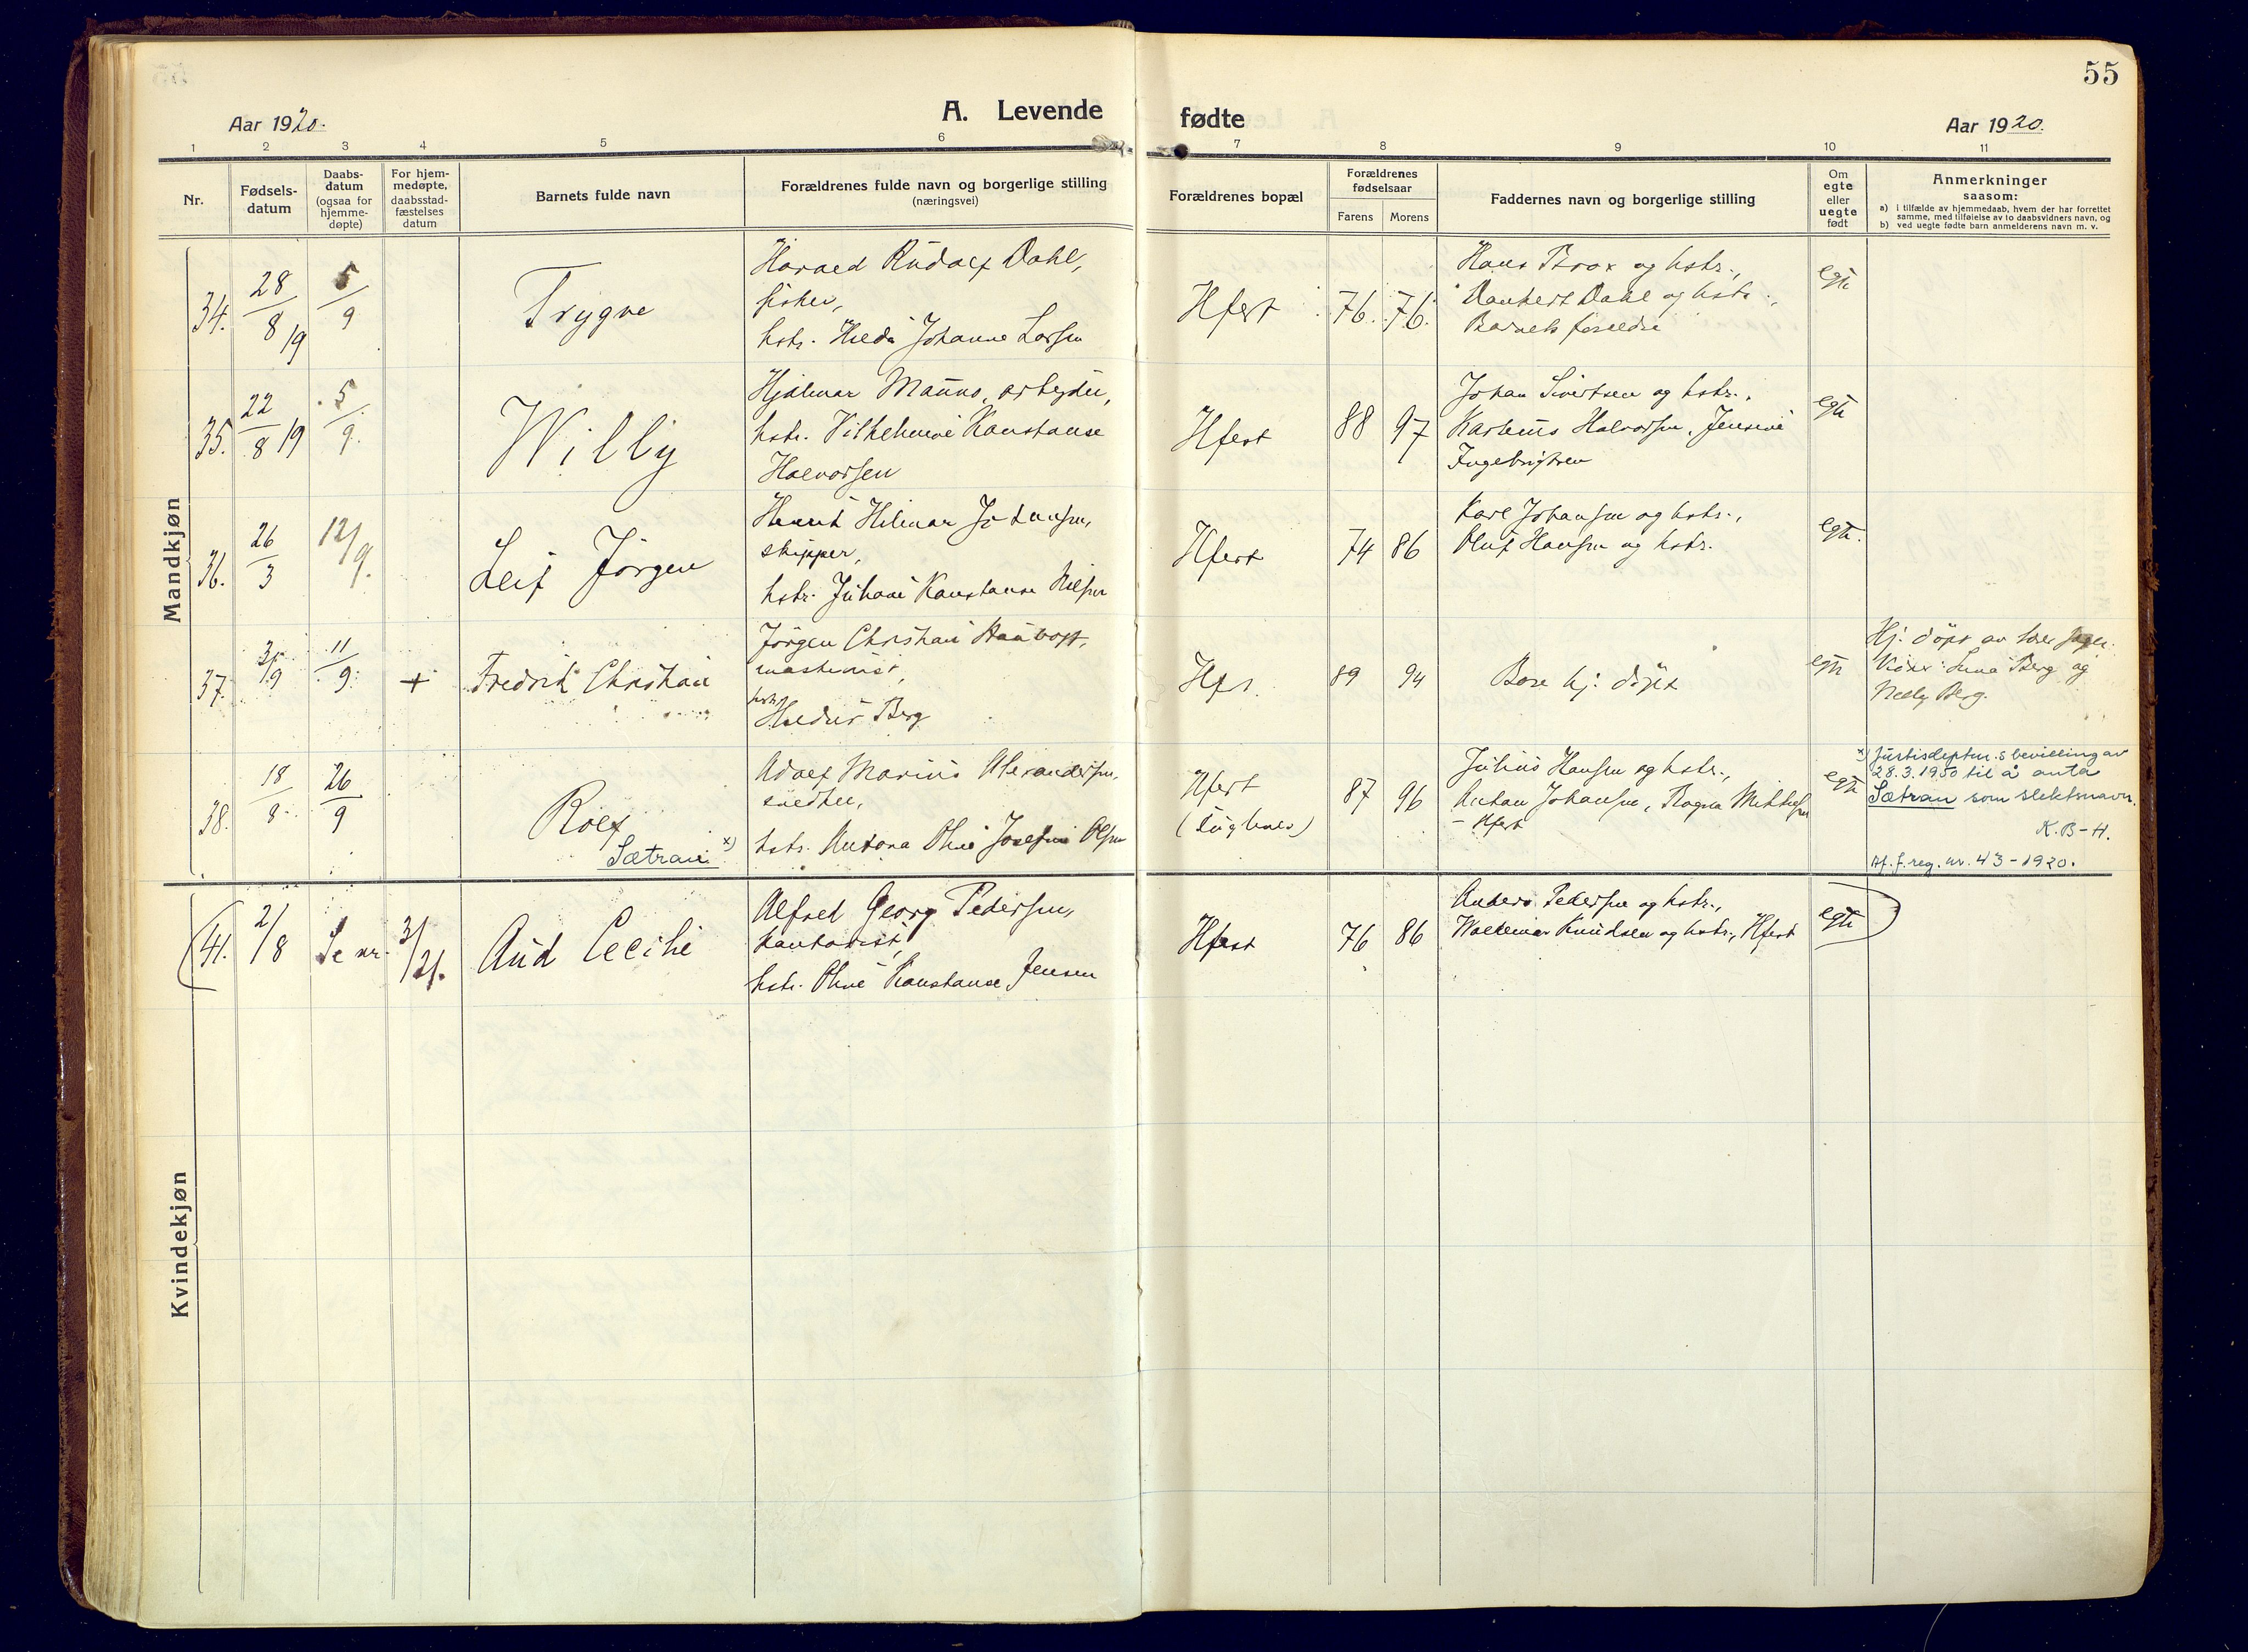 55
Aar 1920.
A. Levende
fødte
Aar 1920.
1 2 3 4 5 6 7 8 9 10 11
Nr.
Fødsels-
datum
Daabs-
datum
(ogsaa for
hjemme-
døpte)
For hjem-
medøpte,
daabsstad-
fæstelses
datum
Barnets fulde navn
Forældrenes fulde navn og borgerlige stilling
(næringsvei)
Forældrenes bopæl
Forældrenes
fødselsaar
Farens Morens
Faddernes navn og borgerlige stilling
Om
egte
eller
uegte
født
Anmerkninger
saasom:
a) i tilfælde av hjemmedaab, hvem der har forrettet
samme, med tilføielse av to daabsvidners navn, og
b) ved uegte fødte barn anmelderens navn m. v.
Mandkjøn
34. 28/8 19 5/9 Trygve
Harald Rudolf Dahl,
fisker,
hstr. Hilda Johanne Larsen
Hfest 76. 76.
Hans Brox og hstr.,
Dankert Dahl og hstr.,
Barnets foreldre
egte
35. 22/8 19 5/9. Willy
Hjalmar Mauno, arbeyder,
hstr. Vilhelmine Konstanse
Halvorsen
Hfest 88 97
Johan Sivertsen og hstr.,
Halvorsen, Jensine
Ingebrigtsen
egte
36. 26/3 12/9. Leif Jörgen
Henrik Hilmar Johansen,
skipper,
hstr. Juliane Konstanse Nilsen
Hfest 74 86
Karl Johansen og hstr.,
Oluf Hansen og hstr.
egte.
37. 11/9. + Fredrik Christian
Jörgen Christian
maskinist,
hstr.
Berg
Hfs. 89 94 Bare hj: döpt
egte
Hj: döpt av
Berg og
Nelly Berg.
38. 18/8. 26/9 Rolf
Sætran x)
Adolf Marius Alexandersen,
snedker,
hstr. Antona Oline Josefine Olsen
Hfest
(Fuglenes)
87 96
Julius Hansen og hstr.,
Anton Johansen, Ragna Mikkelsen
– Hfest
egte
x) Justisdeptm.s bevilling av
28.3.1950 til å anta
Sætran som slektsnavn.
K. B-H.
Af. f. reg. nr. 43-1920.
Kvindekjøn
(41. 2/8 Se nr. 3/21. Aud Cecilie
Alfred Georg Pedersen,
kontorist,
hstr. Oline Konstanse Jensen
Hfest 76 86
Anders Pedersen og hstr.,
Waldemar Knudsen og hstr., Hfest
egte)